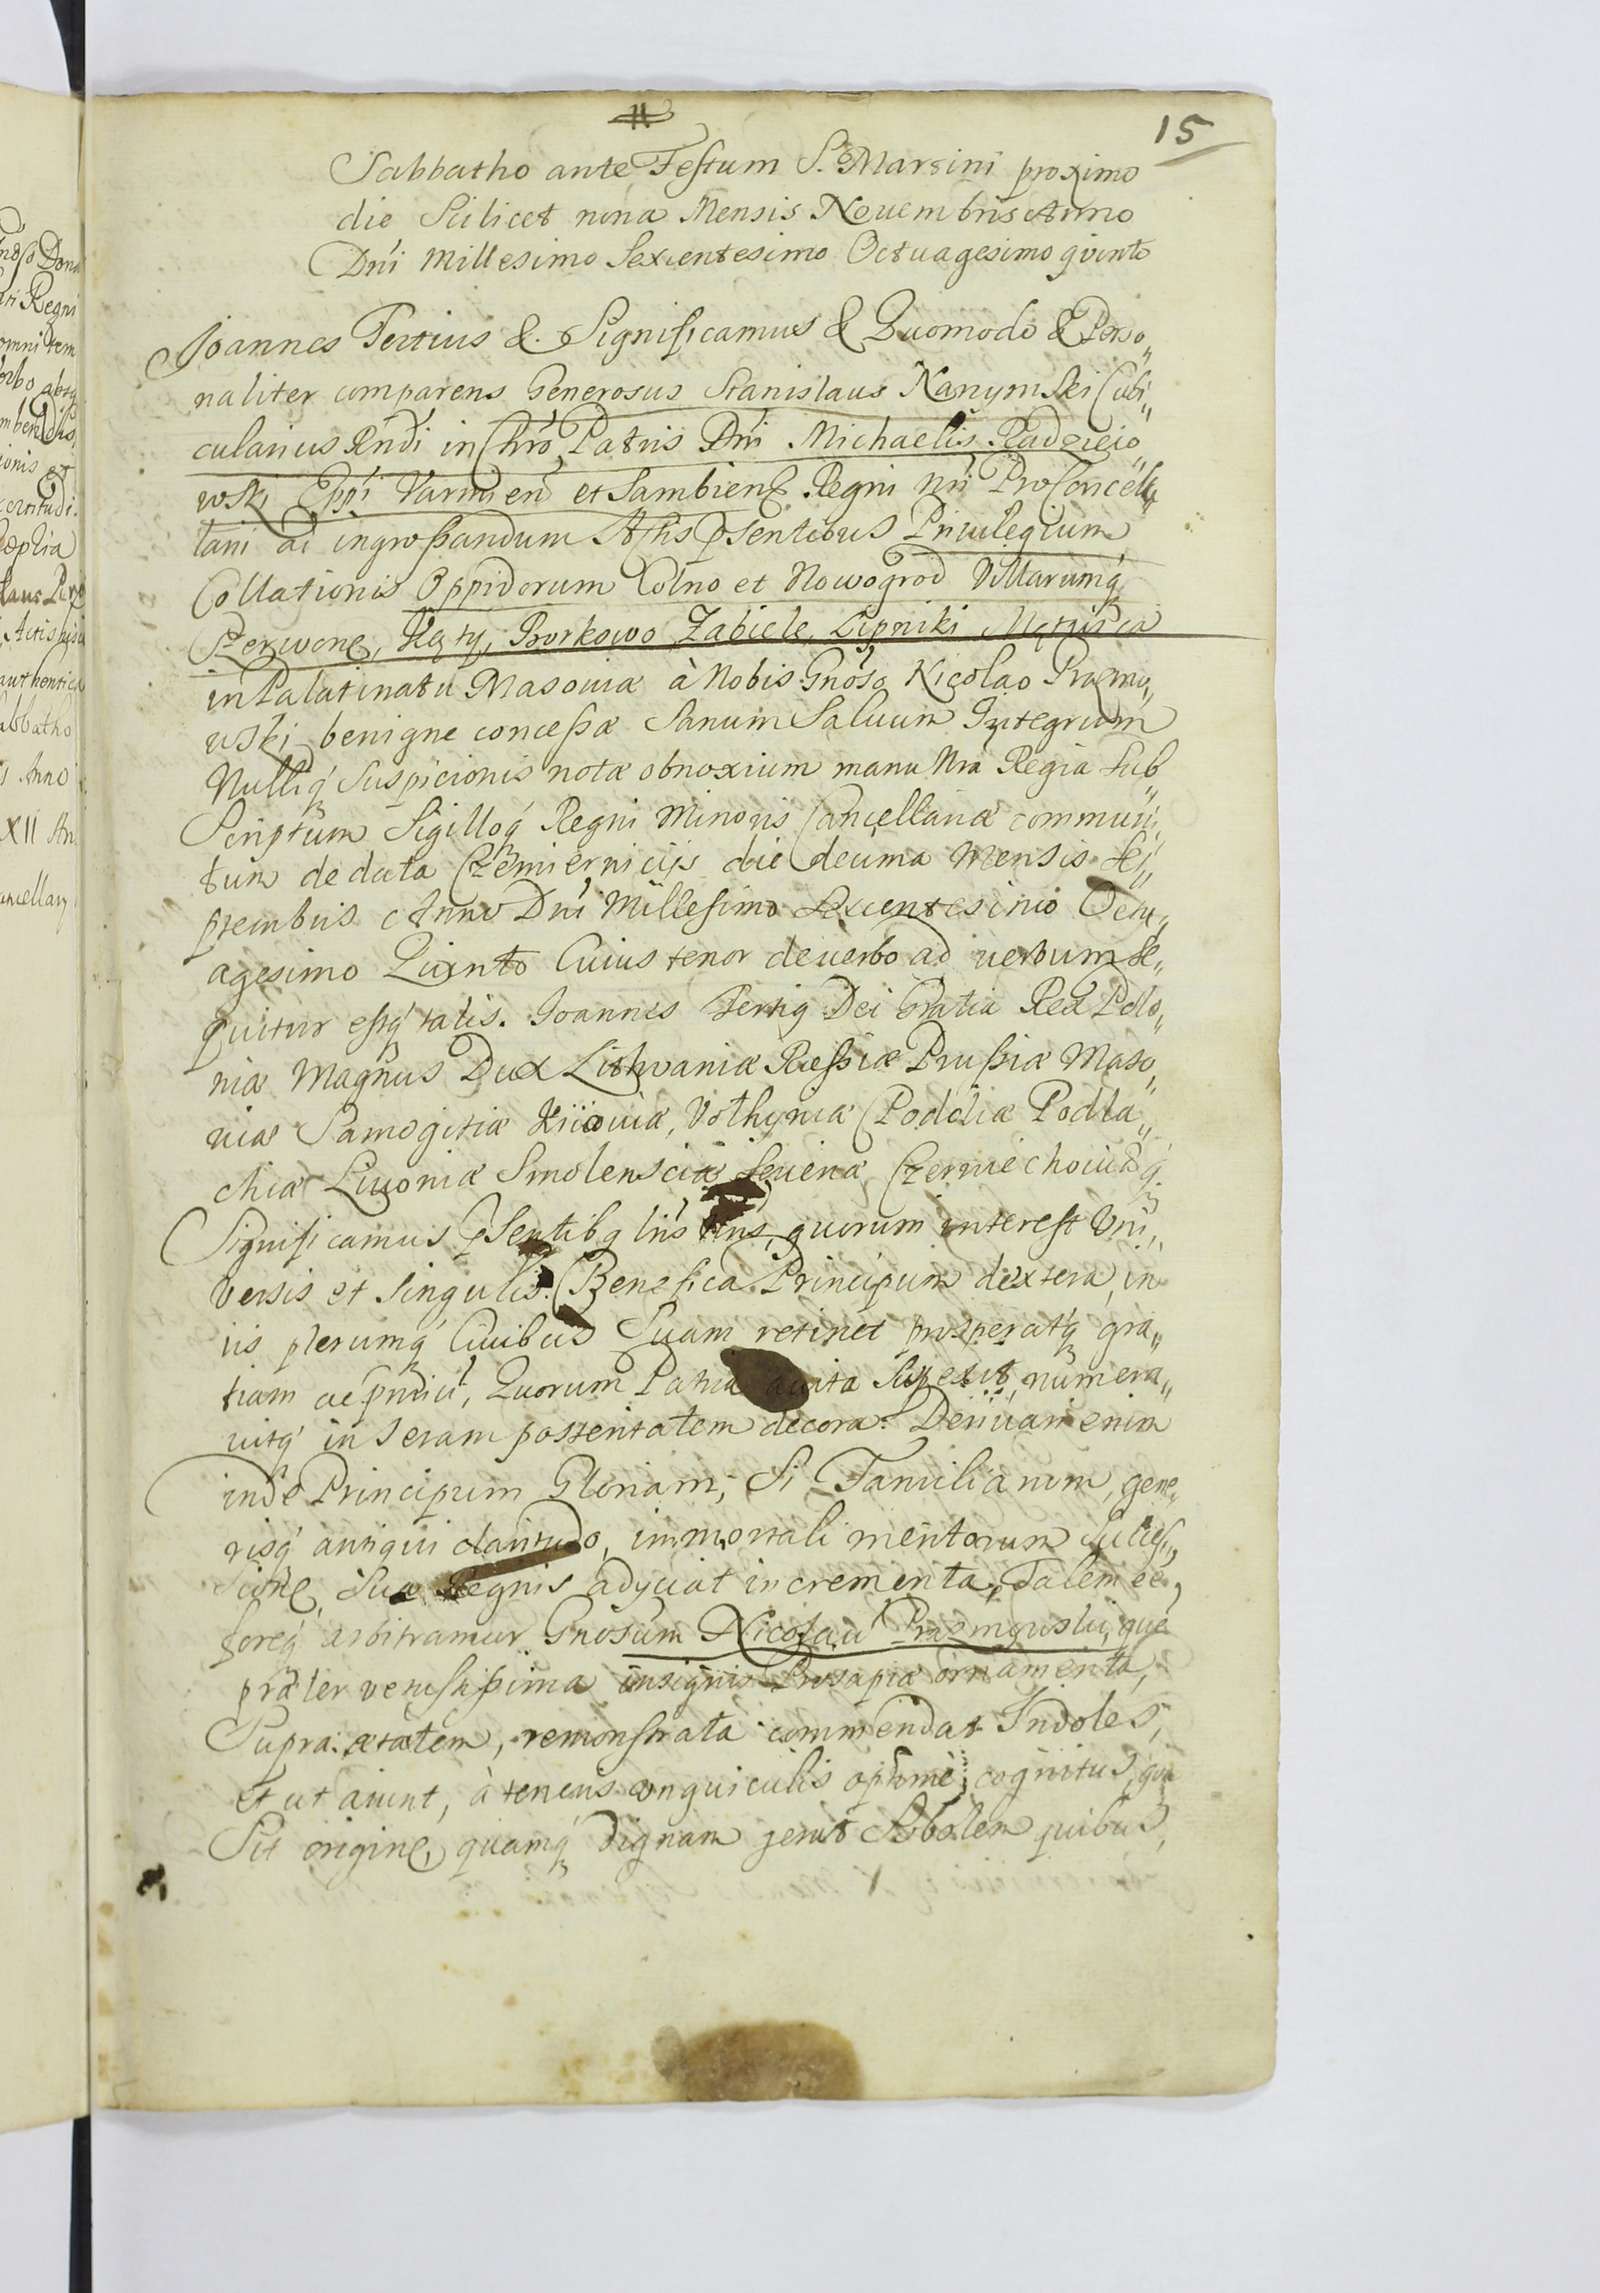 15
Sabbatho ante Festum S. Martini proximo
die Scilicet nona Mensis Nouembris Anno
Dni Millesimo Sexcentesimo Octuagesimo qvinto
Joannes Tertius &. Significamus & Quomodo & Perso„
naliter comparens Generosus Stanislaus Nanymski Cubi„
cularius Rndi in Chro Patris Dni Michaelis Radzieio„
wski Eppi Varmien et Sambiens Regni nri ProCancell„
tani ad ingrossandum Actis psentibus Priuilegium
Collationis Oppidorum Colno et Nowogrod Villarumq
Czerwone, Kąty, Borkowo Zabiele, Lipniki
in Palatinatu Masouiæ à Nobis Gnoso Nicolao Prazmo„
wski benigne concessæ Sanum Saluum Integrum
Nulliq Suspicionis notæ obnoxium manu Nra Regia Sub„
Scriptum Sigilloq Regni Minoris Cancellariæ communi„
tum de data Czemiernicijs die decima Mensis Se„
ptembris Anno Dni Millesimo Sexcentesimo Octu„
agesimo Quinto Cuius tenor de uerbo ad uerbum Se„
quitur estq talis. Joannes Tertiq Dei Gratia Rex Polo„
niæ Magnus Dux Lithvaniæ Russiæ Prussiæ Maso„
uiæ Samogitiæ Kiiouiæ, Volhyniæ Podoliæ Podla„
chiæ Liuoniæ Smolensciæ Seueriæ Czerniechouiæq
Significamus pSentibq lris nris, quorum interest Vni„
versis et Singulis. Benefica Principum dextera, in
iis plerumq Ciuibus Suam retinet prosperatq gra„
tiam ac, Quorum Patria auita numera„
uitq in Seram posteritatem decora. Deriuari enim
inde Principum Gloriam, Si Familiarum, gene„
risq antiqui claritudo, immortali meritorum Succes„
Sione, Suæ Regnis adyciat incrementa, Talem ee,
foreq arbitramur Gnosum Nicolau Prazmowski, que
præter vetustissima insignis Prosapiæ ornamenta,
Supra ætatem, remonstrata commendat Indoles,
et ut aiunt, à teneris vnguiculis optime cognitus, qua
Sit origine, quamq dignam gerat Sobolem quibus